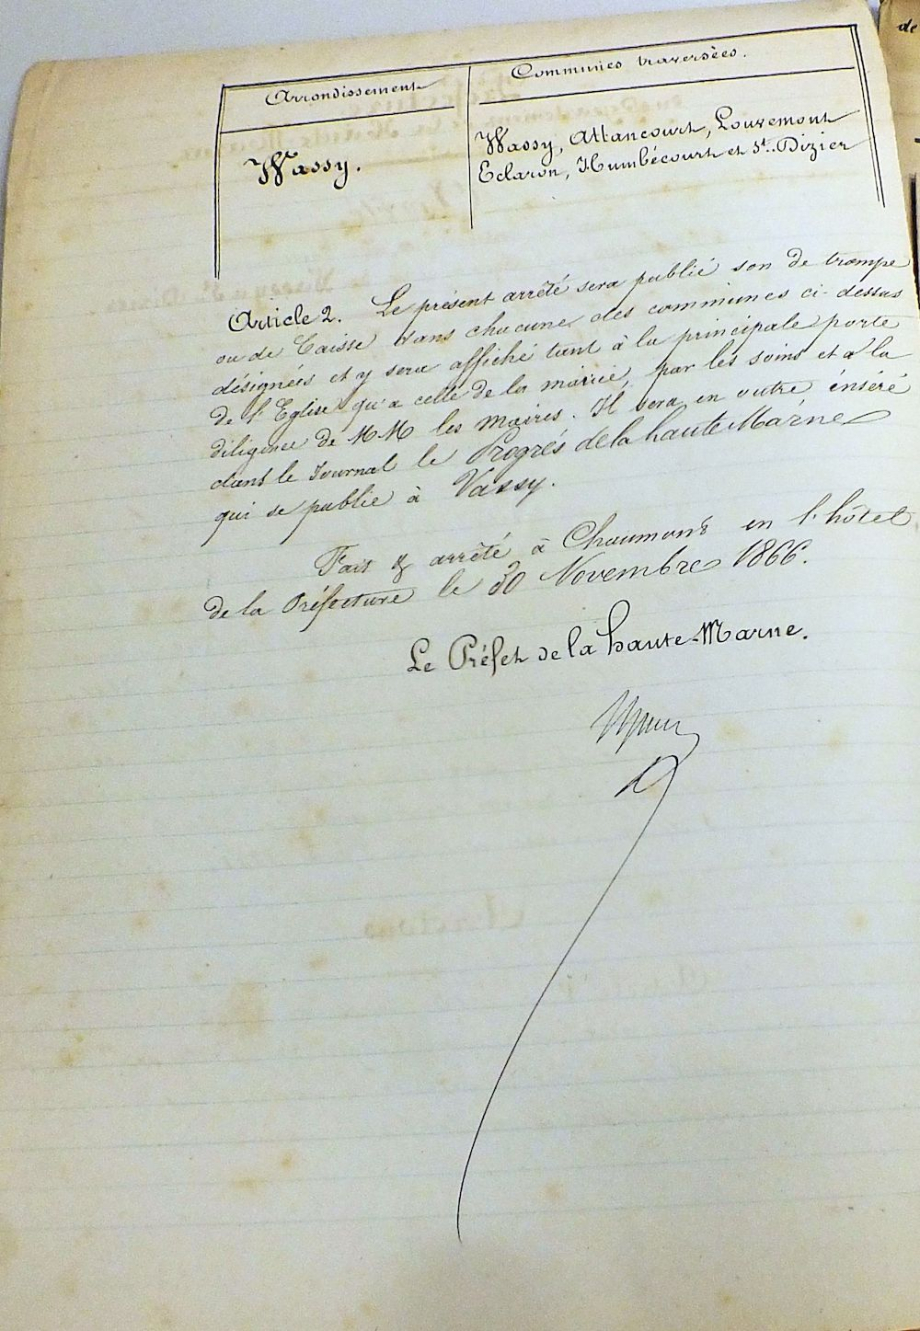 Arrondissement
Communes traversées.
Wassy.
Wassy, Attancourt, Louvemont
Eclaron, Humbécourt et St. Dizier
Article 2. Le présent arrêté sera publié son de trompe
ou de Caisse dans chacune des communes ci-dessus
désignées et y sera affiché tant à la principale porte
de l'Eglise qu'a celle de la mairie, par les soins et à la
diligence de MM les maires. Il sera en outre énséré
dans le Journal le Progrés de la haute Marne
qui se publie à Vassy.
Fait & arrêté à Chaumont en l'hôtel
de la Préfecture le 30 Novembre 1866.
Le Préfet de la haute-Marne.
de